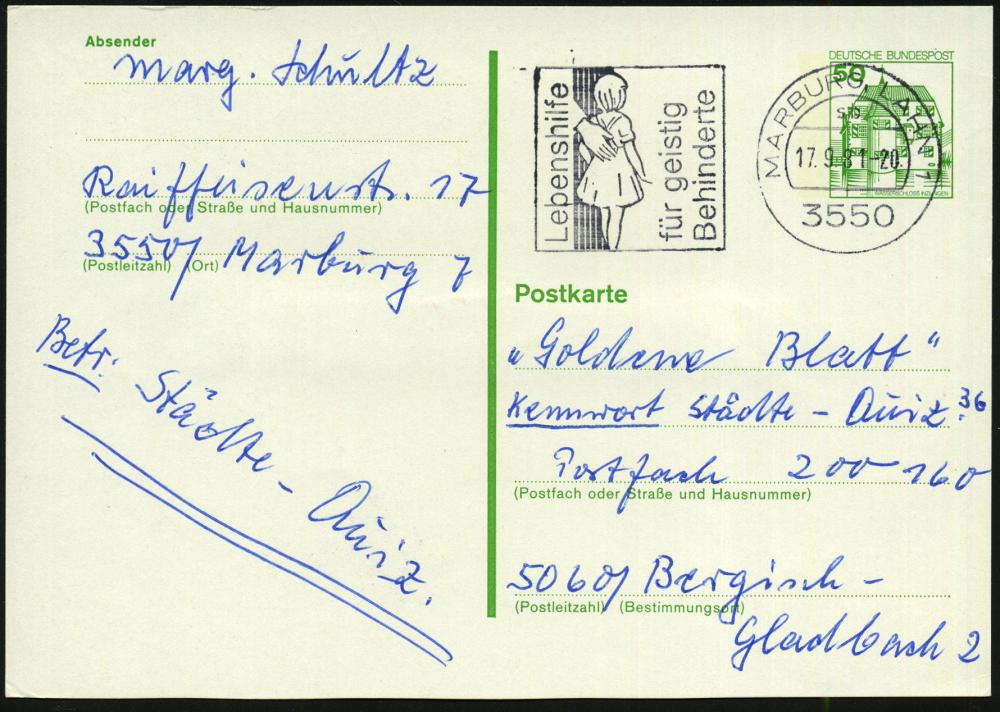 Absender
Marg. Schultz
Raiffeisenstr. 17
(Postfach oder Straße und Hausnummer)
3550/ Marburg 7
(Postleitzahl) (Ort)
Betr. Städte-Quiz.
Lebenshilfe
für geistig
Behinderte
MARBURG, LAHN 1
sb
17.9.81-20
3550
DEUTSCHE BUNDESPOST
50
WASSERSCHLOSS INZLINGEN
Postkarte
"Goldene Blatt"
Kennwort Städte-Quiz 36
Postfach 200 160
(Postfach oder Straße und Hausnummer)
5060/ Bergisch-
(Postleitzahl) (Bestimmungsort)
Gladbach 2